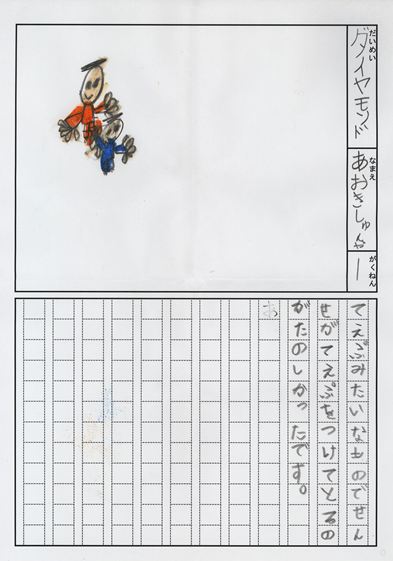 だいめい
ダイヤモンド
なまえ
あおきしゅん
がくねん
一
てえぷみたいなものでせん
せがてえぷをつけてとるの
がたのしかったです。